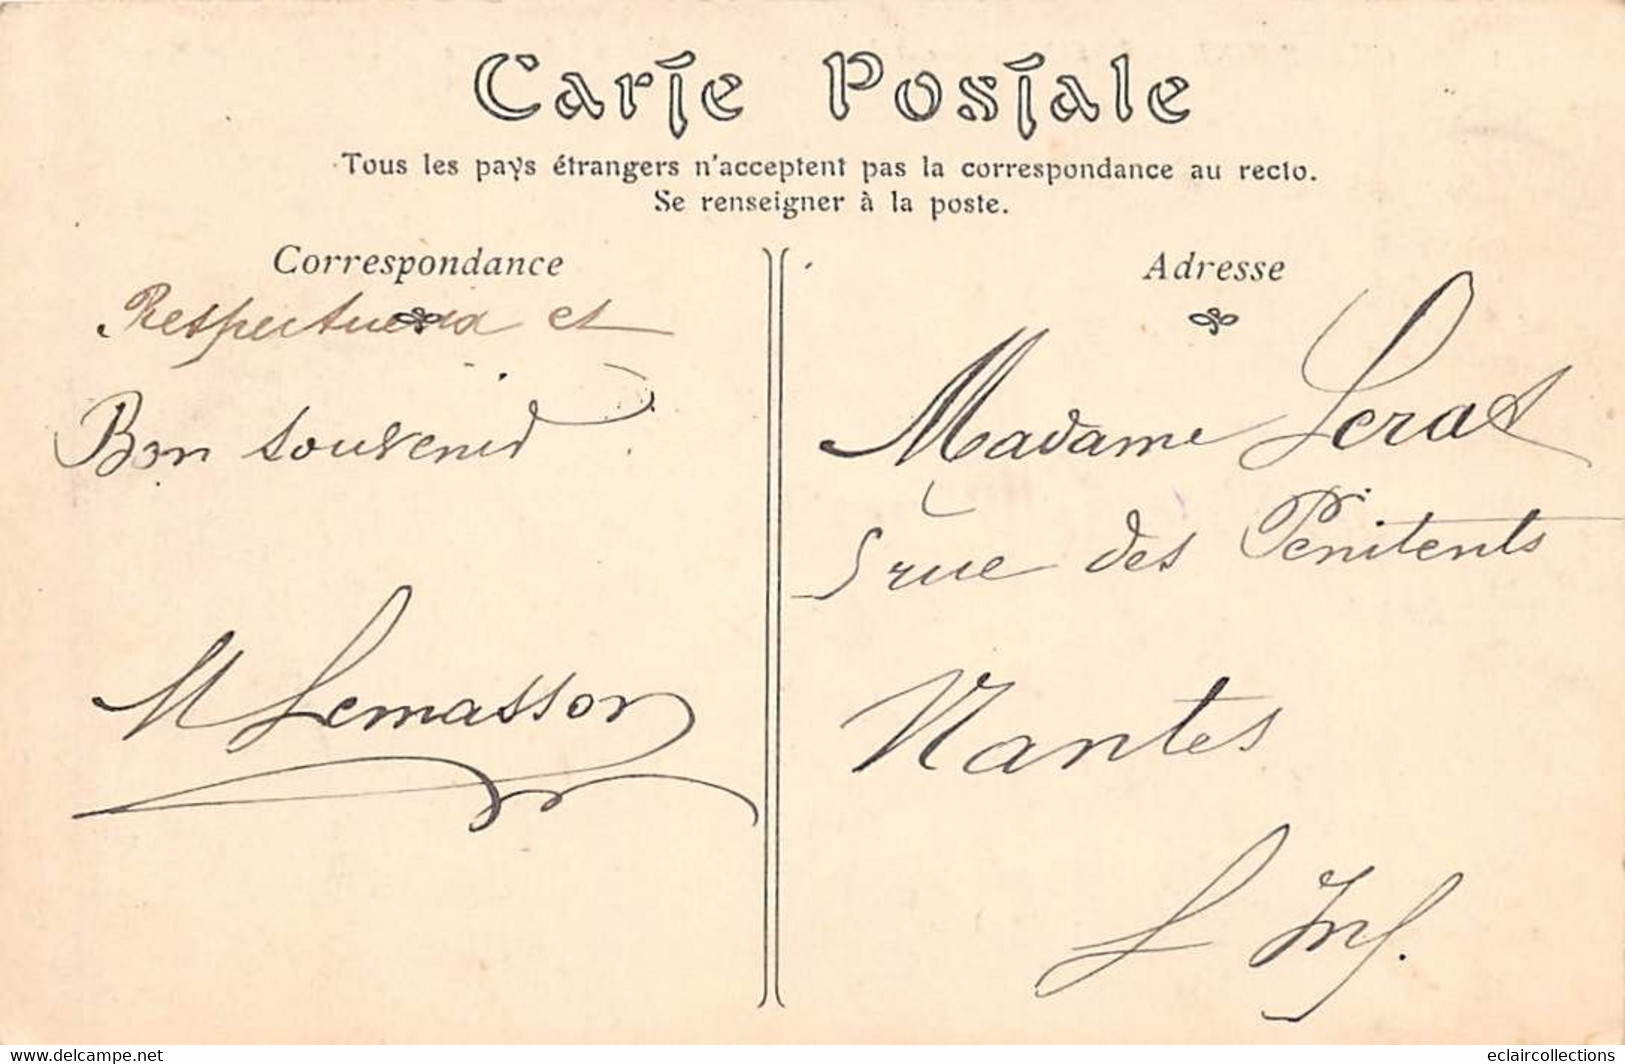 Carte Postale
Tous les pays étrangers n'acceptent pas la correspondance au recto.
Se renseigner à la poste.
Correspondance
Respectueux et
Bon souvenir
M Lemasson
Adresse
Madame Lerat
5 rue des Pénitents
Nantes
L Inf.
www.delcampe.net
eclaircollections